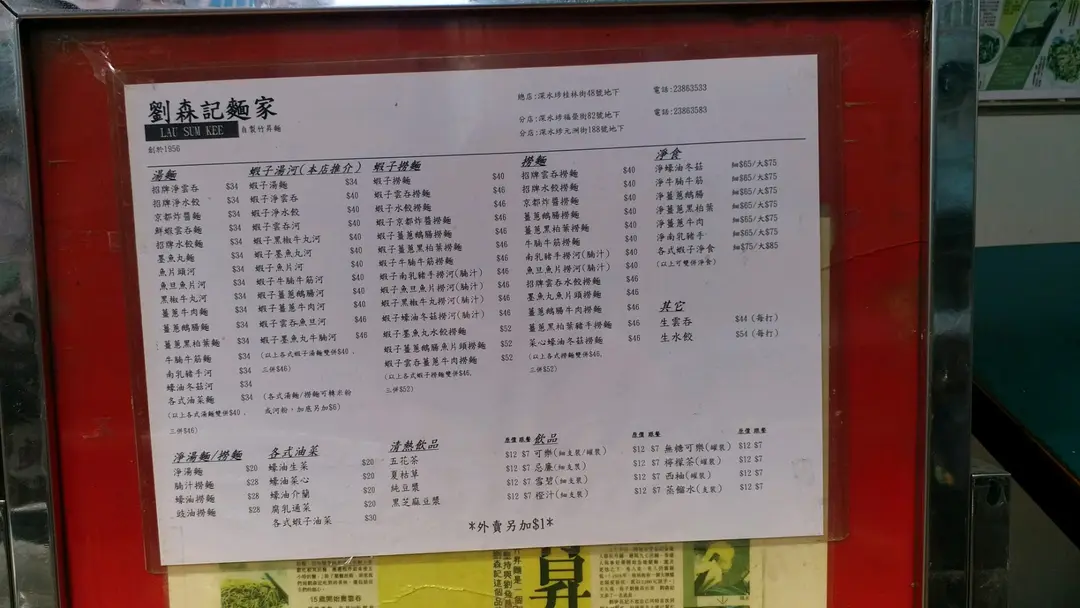 劉森記麵家
LAU SUM KEE 自製竹昇麵
創於1956
總店:深水埗桂林街48號地下 電話:23863533
分店:深水埗福榮街82號地下 電話:23863583
分店:深水埗元洲街188號地下
湯麵
招牌淨雲吞 $34
招牌淨水餃 $34
京都炸醬麵 $34
鮮蝦雲吞麵 $34
招牌水餃麵 $34
墨魚丸麵 $34
魚片頭河 $34
魚旦魚片河 $34
黑椒牛丸河 $34
薑蔥牛肉麵 $34
薑蔥鵝腸麵 $34
薑蔥黑柏葉麵 $34
牛腩牛筋麵 $34
南乳豬手河 $34
蠔油冬菇河 $34
各式油菜麵 $34
(以上各式湯麵雙併$40，
三併$46)
蝦子湯河(本店推介)
蝦子湯麵 $34
蝦子淨雲吞 $40
蝦子淨水餃 $40
蝦子雲吞河 $40
蝦子黑椒牛丸河 $40
蝦子墨魚丸河 $40
蝦子魚片河 $40
蝦子牛腩牛筋河 $40
蝦子薑蔥鵝腸河 $40
蝦子薑蔥牛肉河 $40
蝦子雲吞魚旦河 $46
蝦子墨魚丸牛腩河 $46
(以上各式蝦子湯麵雙併$40，
三併$46)
(各式湯麵/撈麵可轉米粉
或河粉，加底另加$6)
蝦子撈麵
蝦子撈麵 $40
蝦子雲吞撈麵 $46
蝦子水餃撈麵 $46
蝦子京都炸醬撈麵 $46
蝦子薑蔥鵝腸撈麵 $46
蝦子薑蔥黑柏葉撈麵 $46
蝦子牛腩牛筋撈麵 $46
蝦子南乳豬手撈河(腩汁) $46
蝦子魚旦魚片撈河(腩汁) $46
蝦子黑椒牛丸撈河(腩汁) $46
蝦子蠔油冬菇撈河(腩汁) $46
蝦子墨魚丸水餃撈麵 $52
蝦子薑蔥鵝腸魚片頭撈麵 $52
蝦子雲吞薑蔥牛肉撈麵 $52
(以上各式蝦子撈麵雙併$46，
三併$52)
撈麵
招牌雲吞撈麵 $40
招牌水餃撈麵 $40
京都炸醬撈麵 $40
薑蔥鵝腸撈麵 $40
薑蔥黑柏葉撈麵 $40
牛腩牛筋撈麵 $40
南乳豬手撈河(腩汁) $40
魚旦魚片撈河(腩汁) $40
招牌雲吞水餃撈麵 $46
墨魚丸魚片頭撈麵 $46
薑蔥鵝腸牛肉撈麵 $46
薑蔥黑柏葉豬手撈麵 $46
菜心蠔油冬菇撈麵 $46
(以上各式撈麵雙併$46，
三併$52)
淨食
淨蠔油冬菇 細$65/大$75
淨牛腩牛筋 細$65/大$75
淨薑蔥鵝腸 細$65/大$75
淨薑蔥黑柏葉 細$65/大$75
淨薑蔥牛肉 細$65/大$75
淨南乳豬手 細$65/大$75
各式蝦子淨食 細$75/大$85
(以上可雙併淨食)
其它
生雲吞 $44(每打)
生水餃 $54(每打)
淨湯麵/撈麵
淨湯麵 $20
腩汁撈麵 $28
蠔油撈麵 $28
豉油撈麵 $28
各式油菜
蠔油生菜 $20
蠔油菜心 $20
蠔油介蘭 $20
腐乳通菜 $20
各式蝦子油菜 $30
清熱飲品 原價 跟餐
五花茶 $12 $7
夏枯草 $12 $7
純豆漿 $12 $7
黑芝麻豆漿 $12 $7
飲品 原價 跟餐 原價 跟餐
可樂(細支裝/罐裝) $12 $7 無糖可樂(罐裝) $12 $7
忌廉(細支裝) $12 $7 檸檬茶(罐裝) $12 $7
雪碧(細支裝) $12 $7 西柚(罐裝) $12 $7
橙汁(細支裝) $12 $7 蒸餾水(支裝) $12 $7
*外賣另加$1*
15歲開始賣雲吞